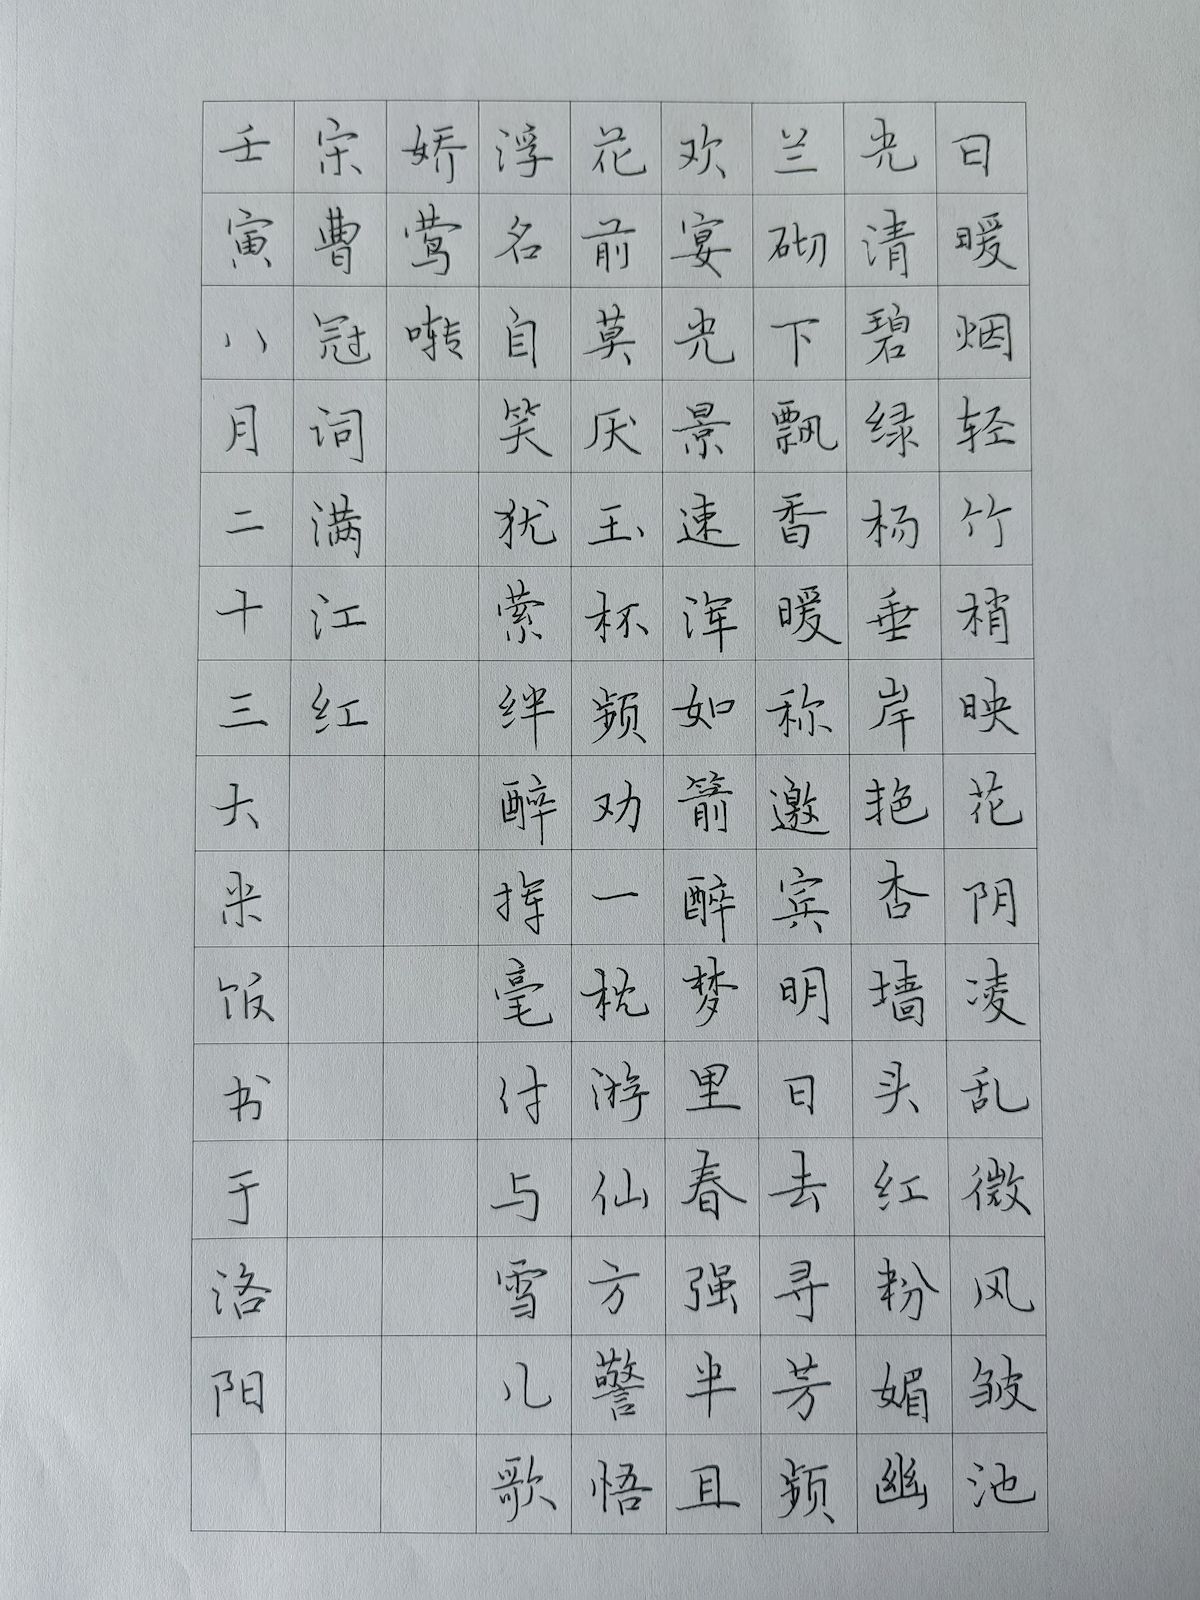 日暖烟轻竹梢映花阴凌乱微风皱池
光清碧绿杨垂岸艳杏墙头红粉媚幽
兰砌下飘香暖称邀宾明日去寻芳频
欢宴光景速浑如箭醉梦里春强半且
花前莫厌玉杯频劝一枕游仙方警悟
浮名自笑犹萦绊醉挥毫付与雪儿歌
娇莺啭
宋曹冠词满江红
壬寅八月二十三大米饭书于洛阳